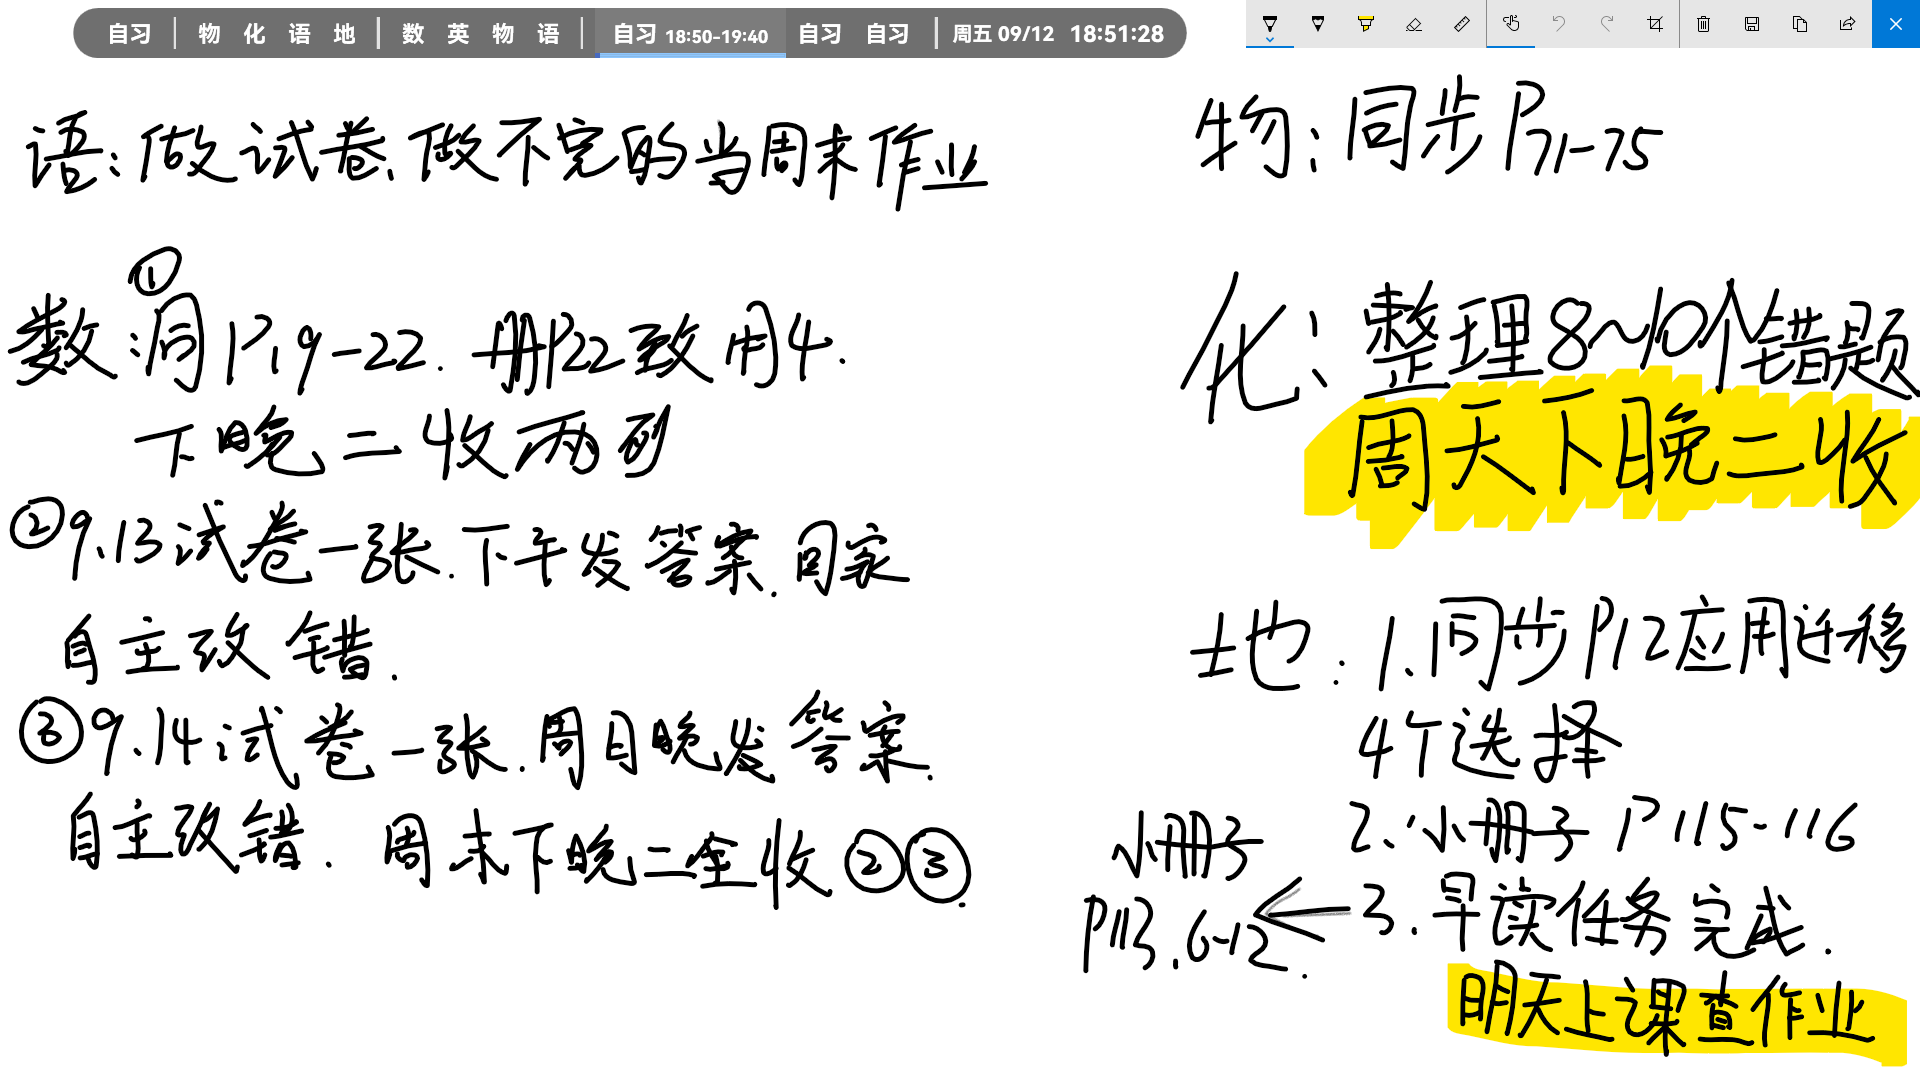 自习 | 物 化 语 地 | 数 英 物 语 | 自习 18:50-19:40 自习 自习 | 周五 09/12 18:51:28
语:做试卷、做不完的当周末作业
数:①同P19-22. 册P22致用4.
下晚二收两列
②9.13试卷一张.下午发答案.回家
自主改错.
③9.14试卷一张.周日晚发答案.
自主改错.周末下晚二全收②③.
物:同步P71-75
化:整理8~10个错题
周天下晚二收
地:1.同步P12应用迁移
4个选择
2.小册子P115-116
3.早读任务完成.
小册子
P113.6-12.
明天上课查作业